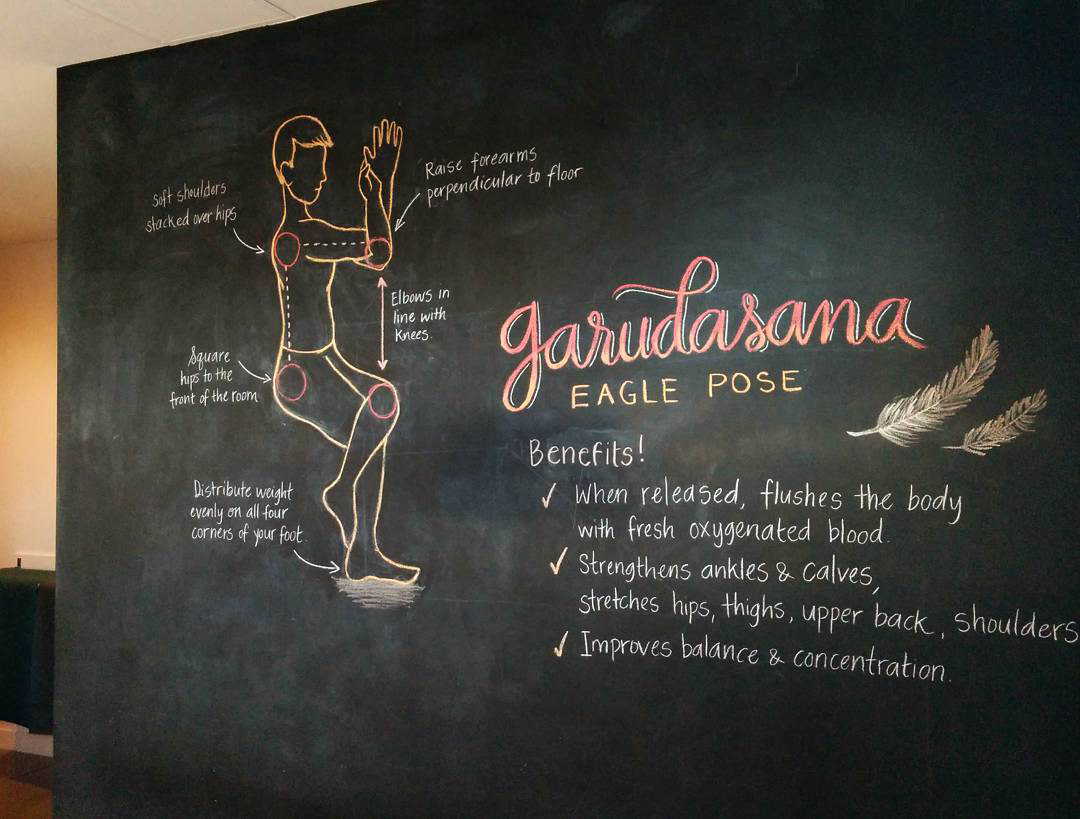 Soft shoulders
stacked over hips
Raise forearms
perpendicular to floor
Elbows in
line with
Knees.
Square
hips to the
front of the room
Distribute weight
evenly on all four
corners of your foot.
garudasana
EAGLE POSE
Benefits!
✓ When released, flushes the body
with fresh oxygenated blood.
✓ Strengthens ankles & calves,
stretches hips, thighs, upper back, shoulders
✓ Improves balance & concentration.